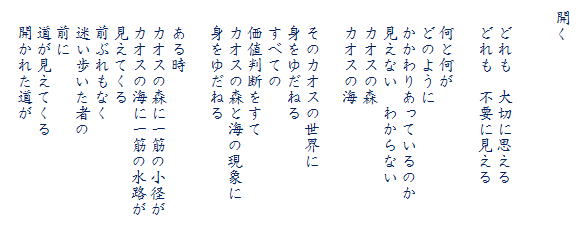 開く
どれも　大切に思える
どれも　不要に見える
何と何が
どのように
かかわりあっているのか
見えない　わからない
カオスの森
カオスの海
そのカオスの世界に
身をゆだねる
すべての
価値判断をすて
カオスの森と海の現象に
身をゆだねる
ある時
カオスの森に一筋の小径が
カオスの海に一筋の水路が
見えてくる
前ぶれもなく
迷い歩いた者の
前に
道が見えてくる
開かれた道が